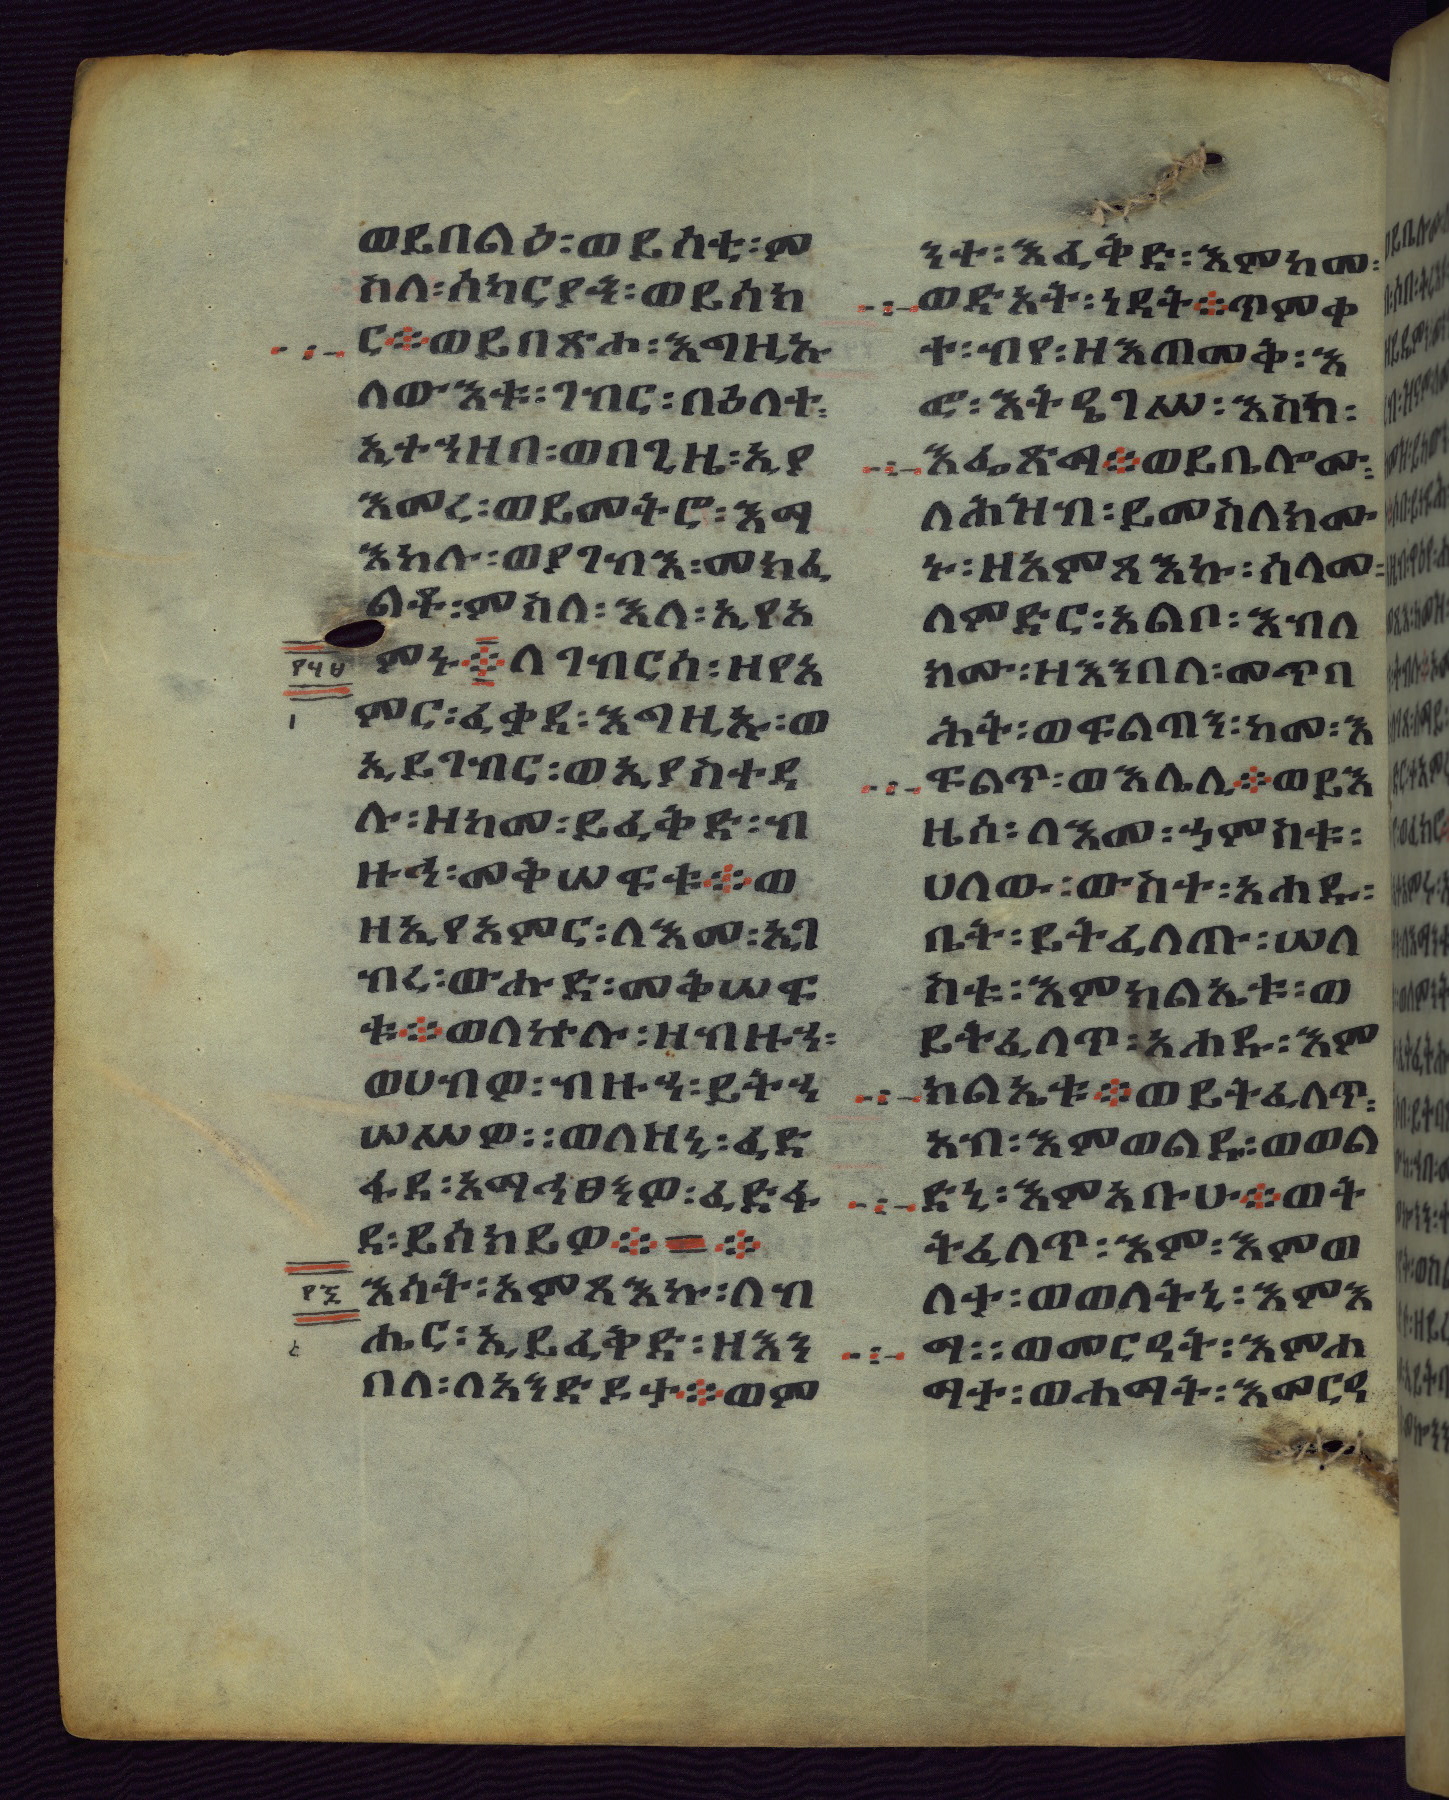 ወይበልዕ፡ወይሰቲ፡ም
ስለ፡ሰካርያን፡ወይሰክ
ር፨ወይበጽሐ፡እግዚኡ
ለውእቱ፡ገብር፡በዕለተ፡
ኢተኀዘበ፡ወበጊዜ፡ኢያ
እመረ፡ወይመትሮ፡እማ
እከሉ፡ወያገብእ፡መክፈ
ልቶ፡ምስለ፡እለ፡ኢየአ
፻፺፰
ምኑ፨ለገብርሰ፡ዘየአ
፩
ምር፡ፈቃደ፡እግዚኡ፡ወ
ኢይገብር፡ወኢያስተዳ
ሉ፡ዘከመ፡ይፈቅድ፡ብ
ዙኀ፡መቅሠፍቱ፨ወ
ዘኢየአምር፡ለእመ፡ኢገ
ብረ፡ውሑድ፡መቅሠፍ
ቱ፨ወለኵሉ፡ዘብዙኀ፡
ወሀብዎ፡ብዙኀ፡ይትኀ
ሠሥዎ፡፡ወለዘኒ፡ፈድ
ፋደ፡አማኅፀንዎ፡ፈድፋ
ደ፡ይሰክይዎ፨=፨
፻፷
እሳት፡አምጻእኩ፡ለብ
፪
ሔር፡ኢይፈቅድ፡ዘእን
በለ፡ለአንድዶታ፨ወም
ንተ፡እፈቅድ፡እምከመ፡
ወድአት፡ነደት፨ጥምቀ
ተ፡ብየ፡ዘእጠመቅ፡እ
ፎ፡እትዔገሥ፡እስከ፡
እፌጽማ፨ወይቤሎሙ፡
ለሕዝብ፡ይመስለክሙ
ኑ፡ዘአምጻእኩ፡ሰላመ፡
ለምድር፡አልቦ፡እብለ
ክሙ፡ዘእንበለ፡መጥባ
ሕት፡ወፍልጣን፡ከመ፡እ
ፍልጥ፡ወእሌሊ፨ወይእ
ዜሰ፡ለእመ፡ኃምስቱ፡
ሀለው፡ውስተ፡አሐዱ፡
ቤት፡ይትፈለጡ፡ሠለ
ስቱ፡እምክልኤቱ፡ወ
ይትፈለጥ፡አሐዱ፡እም
ክልኤቱ፨ወይትፈለጥ፡
አብ፡እምወልዱ፡ወወል
ድኒ፡እምአቡሁ፨ወት
ትፈለጥ፡እም፡እምወ
ለታ፡ወወለትኒ፡እምእ
ማ፡፡ወመርዓት፡እምሐ
ማታ፡ወሐማት፡እመርዓ